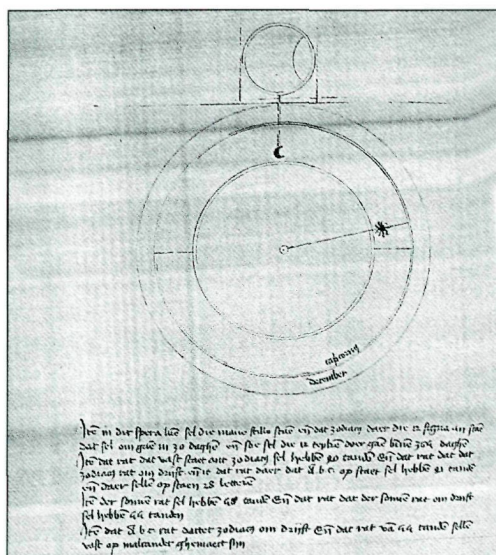 capricornus
december
Jtē in dit spera lūe sel die mane stille staē eñ dat zodiacꝯ daer die 12 signa in staē
dat sel om gaē in 30 daghē eñ soe sel die 12 tepkē doer gaē binē 364 daghē
Jtē dat rat dat vast staet ant zodiacꝯ sel hebbē 90 tandē Eñ dat rat dat dat
zodiacꝯ rat om drijft eñ it dat rat daer dat A b c op staet sel hebbē 91 tandē
eñ daer sellē op staen 28 letterē
Jtē der sonnē rat sel hebbē 48 tandē Eñ dat rat dat der sonnē rat om drift
sel hebbē 44 tanden
Jtē dat A b c rat dattet zodiacꝯ om drijft Eñ dat rat vā 44 tandē sellē
vast op malcander ghemaect sijn